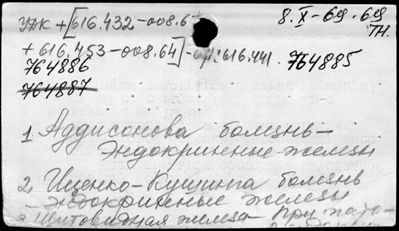 УДК + [616.432-008.6
8.X-69.69
ТН.
+ 616.453-008.64]-
:616.441.
764885
764886
764887
1. Аддисонова болезнь-
Эндокринные железы
2. Иценко-Кушинга болезнь
эндокринные железы
Щитовидная железа- при